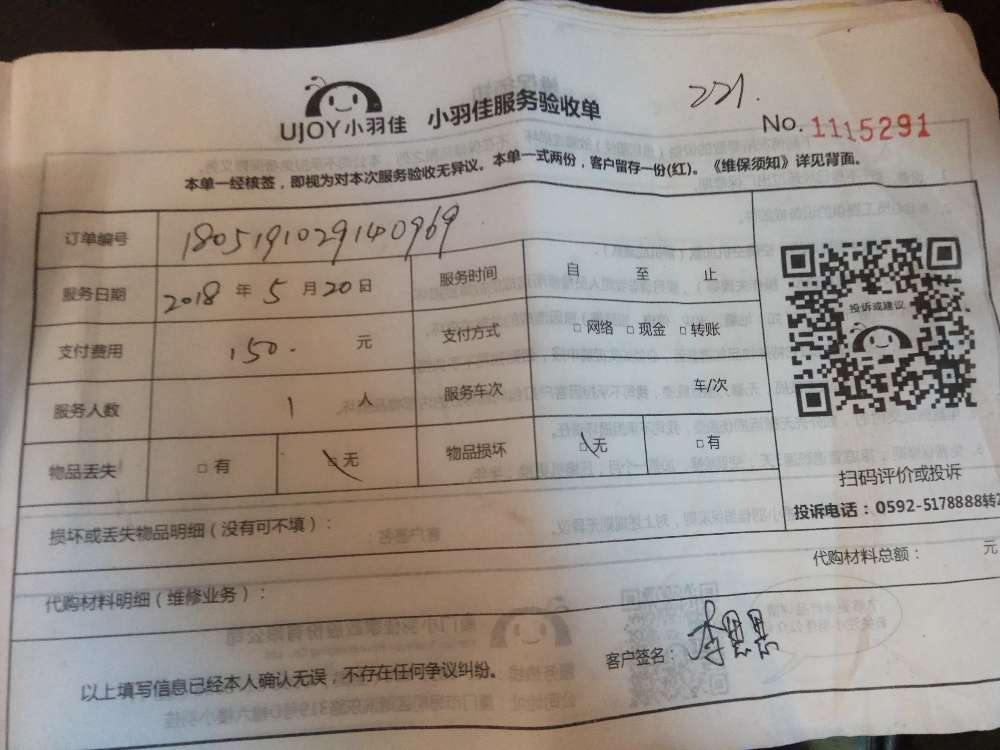 221.
UJOY小羽佳 小羽佳服务验收单
No. 1115291
本单一经核签，即视为对本次服务验收无异议。本单一式两份，客户留存一份(红)。《维保须知》详见背面。
订单编号 1805191029140969
服务日期 2018 年 5 月 20 日 服务时间 自 至 止
支付费用 150. 元 支付方式 □网络 □现金 □转账
服务人数 1 人 服务车次 车/次
物品丢失 □有 □无 物品损坏 □无 □有
投诉或建议
扫码评价或投诉
投诉电话：0592-5178888转2
损坏或丢失物品明细（没有可不填）：
代购材料明细（维修业务）： 代购材料总额： 元
以上填写信息已经本人确认无误，不存在任何争议纠纷。 客户签名：李思思